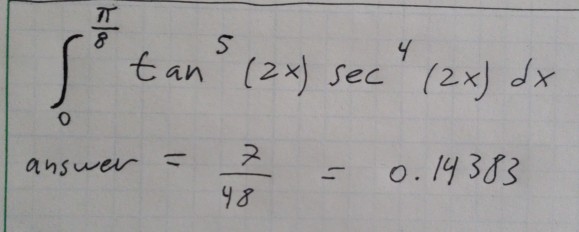 ∫₀^{π/8} tan⁵ (2x) sec⁴ (2x) dx
answer = 7/48 = 0.14383